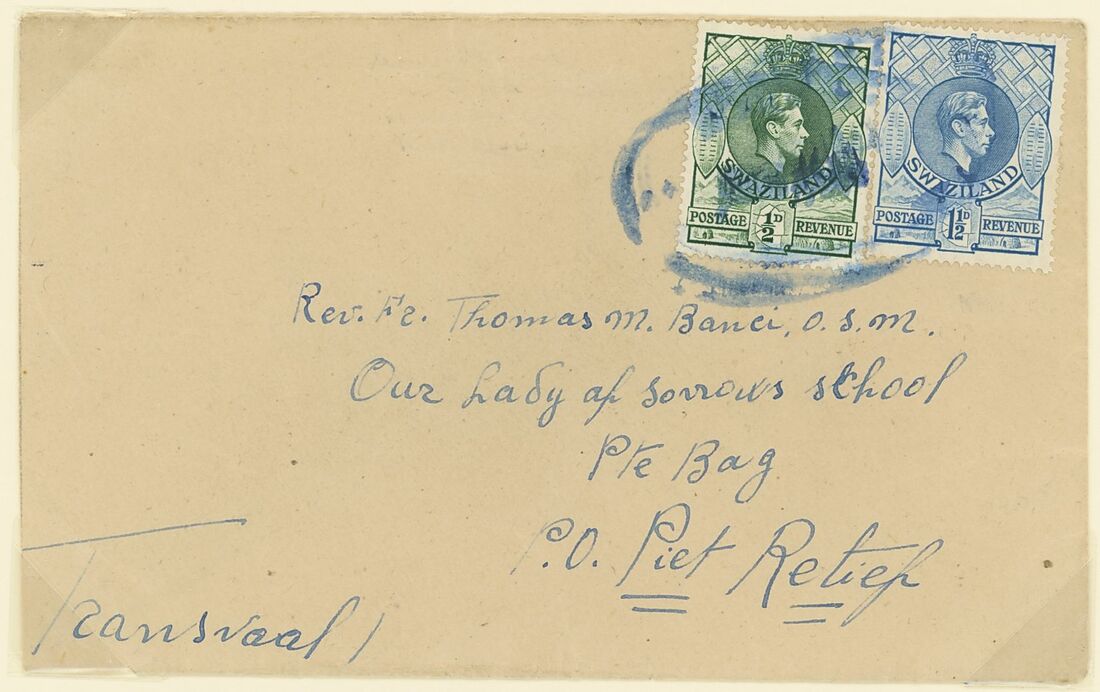 SWAZILAND
POSTAGE ½D REVENUE
SWAZILAND
POSTAGE 1½D REVENUE
Rev. Fr. Thomas M. Banci, O.S.M.
Our Lady of Sorrows School
Pte Bag
P.O. Piet Retief
Transvaal